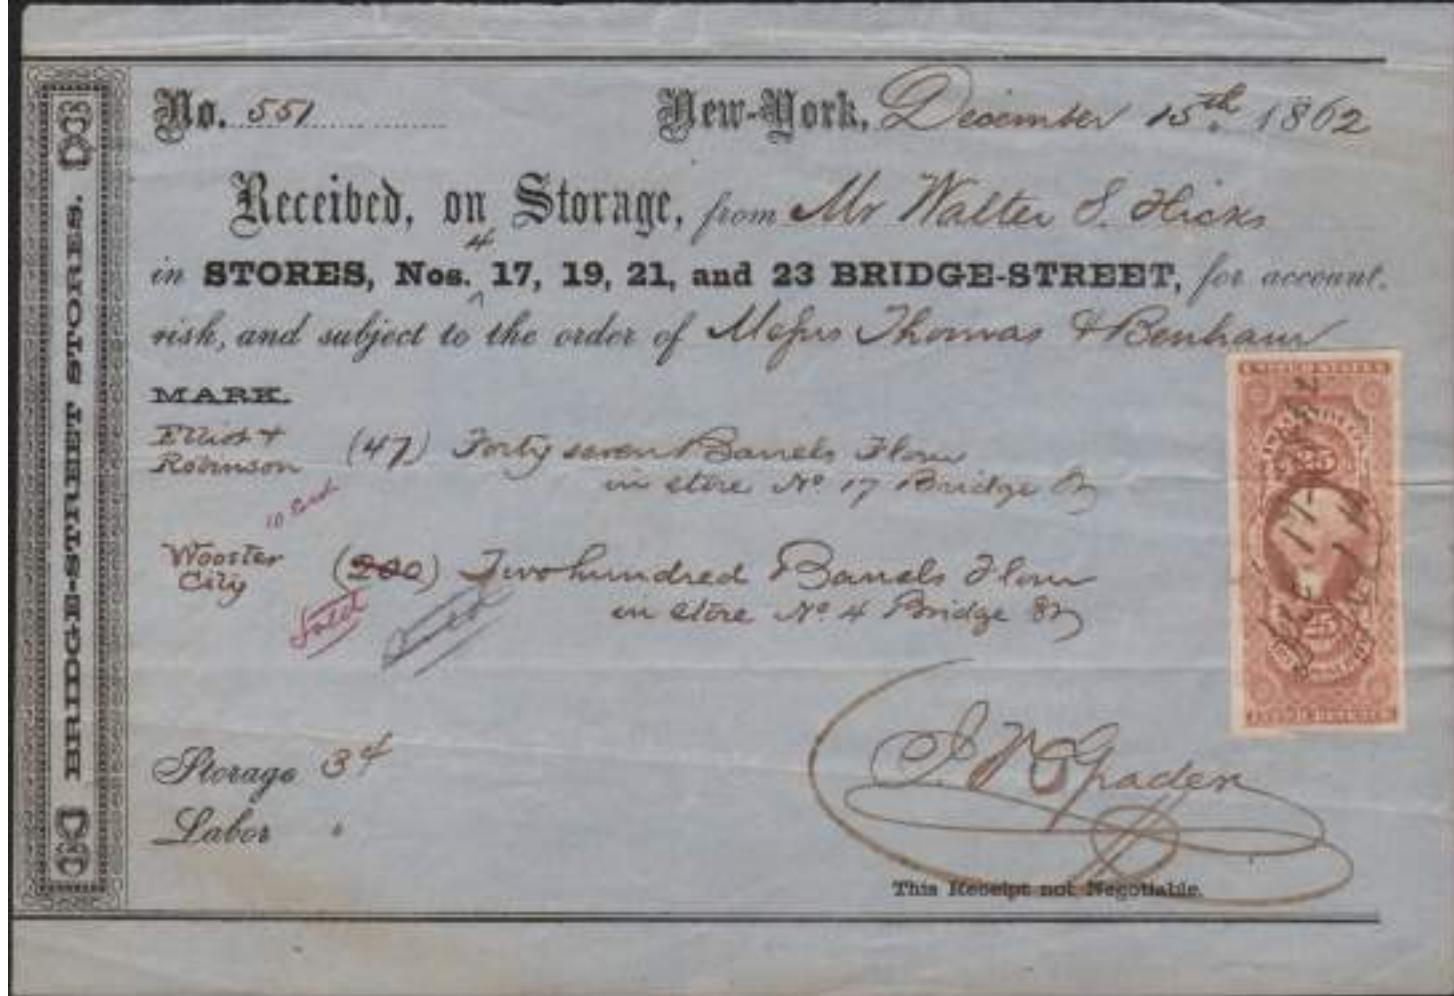 BRIDGE-STREET STORES.
No. 551
New-York, December 15th 1862
Received, on Storage, from Mr Walter S. Hicks
4
in STORES, Nos. ^ 17, 19, 21, and 23 BRIDGE-STREET, for account,
risk, and subject to the order of Messrs Thomas & Benham
MARK.
Elliot &
Robinson (47) Forty seven Barrels Flour
in store No 17 Bridge St
Wooster
City (200) Two hundred Barrels Flour
in store No 4 Bridge St
Storage 3
Labor "
Spader
This Receipt not Negotiable.
UNITED STATES
25